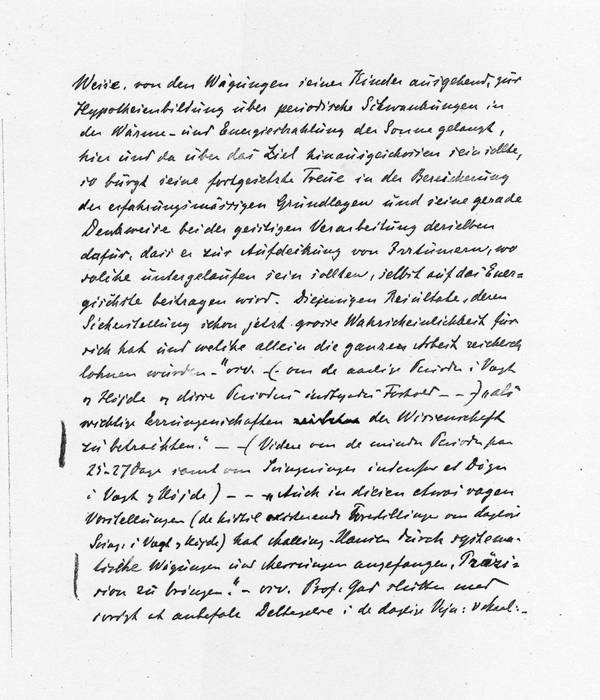 Weise, von den Wägungen seiner Kinder ausgehend, zur
Hypothesenbildung über periodische Schwankungen in
der Wärme- und Energiestrahlung der Sonne gelangt,
hin und da über das Ziel hinausgeschossen sein sollte,
so bürgt seine fortgesetzte Treue in der Bereicherung
der erfahrungsmässigen Grundlagen und seine gerade
Denkweise bei der geistigen Verarbeitung derselben
dafür, dass er zur Aufdeckung von Irrtümern, wo
solche untergelaufen sein sollten, selbst auf das Ener=
gischste beitragen wird. Diejenigen Resultate, deren
Sicherstellung schon jetzt grosse Wahrscheinlichkeit für
sich hat und welche allein die ganze Arbeit reichlich
lohnen würden - " osv. - (- om de aarlige Perioder i Vægt
og Højde og disse Perioders indbyrdes Forhold - - ) "als
wichtige Errungenschaften der Wissenschaft
zu betrachten." - - (Videre om de mindre Perioder paa
25-27 Dage samt om Svingninger indenfor et Døgn
i Vægt og Højde) - - - "Auch in diesen etwas vagen
Vorstellungen (de hidtil existerende Forestillinger om daglige
Sving. i Vægt og Højde) hat Malling-Hansen durch systema-
tische Wägungen und Messungen angefangen, Präzi-
sion zu bringen." - osv. Prof. Gad slutter med
ivrigt at anbefale Deltagelse i de daglige Veje-